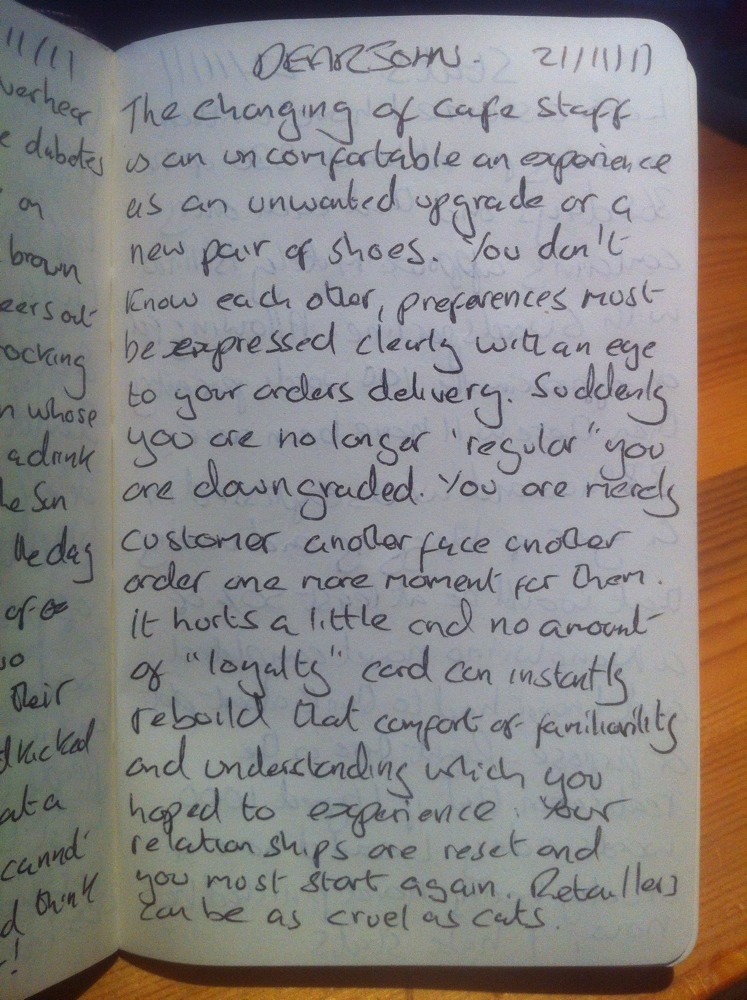 11/11
verhear
e diabetes
on
brown
eers out
ocking
n whose
a drink
he Sun
the day
of
so
their
d kicked
at a
cannot
d think
!
DEAR JOHN. 21/11/11
The changing of cafe staff
is an uncomfortable an experience
as an unwanted upgrade or a
new pair of shoes. You don't
know each other, preferences must
be expressed clearly with an eye
to your orders delivery. Suddenly
you are no longer "regular" you
are downgraded. You are merely
customer another face another
order one more moment for them.
It hurts a little and no amount
of "loyalty" card can instantly
rebuild that comfort of familiarity
and understanding which you
hoped to experience. Your
relationships are reset and
you must start again. Retailers
can be as cruel as cats.